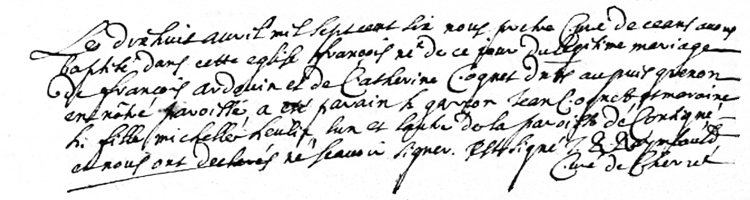 Le dixhuit avril mil sept cent six nous prestre Curé de ceans avons
baptisé dans cette eglise françois né de ce jour du legitime mariage
de françois ardouin et de Catherine Cognet dnts au puis guenon
en nôtre paroisse, a été parain h. garson Jean Cognet et maraine
h. fille michelle heulin lun et lautre de la paroisse de Contigné
et nous ont declarés ne sçavoir signer.
Curé de Cherret